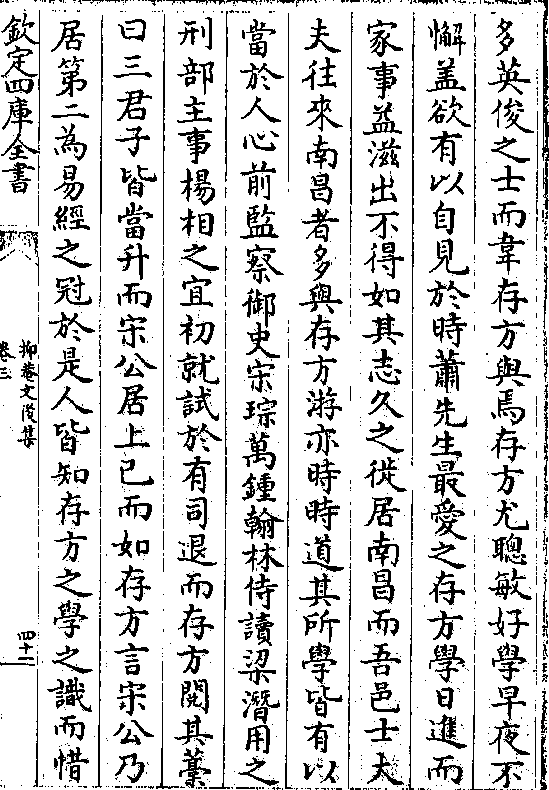 多英俊之士而韋存方與焉存方尤聰敏好學早夜不
懈盖欲有以自見於時蕭先生最愛之存方學日進而
家事益滋出不得如其志久之徙居南昌而吾邑士大
夫往來南昌者多與存方游亦時時道其所學皆有以
當於人心前監察御史宋琮萬鍾翰林侍讀梁潛用之
刑部主事楊相之宜初就試於有司退而存方閱其藁
曰三君子皆當升而宋公居上已而如存方言宋公乃
居第二為易經之冠於是人皆知存方之學之識而惜
欽定四庫全書
抑菴文後集
卷三
四十一